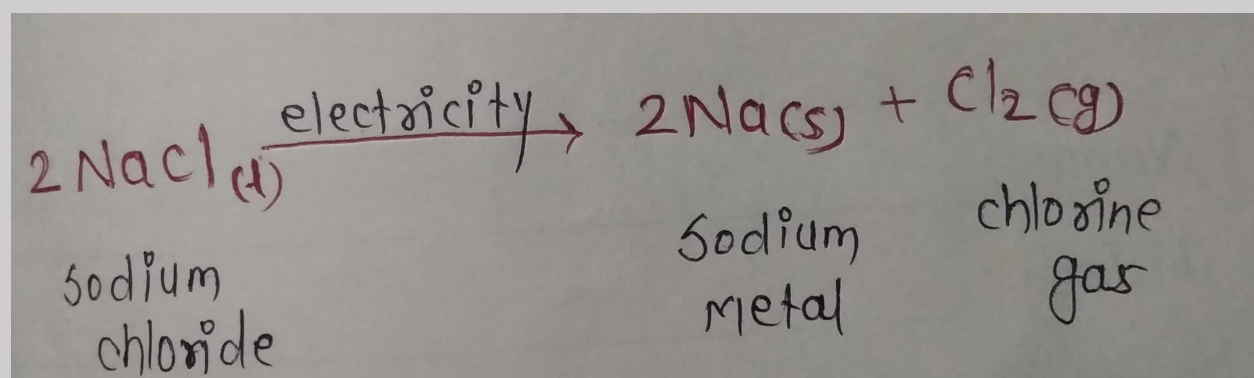 2NaCl(l) electricity → 2Na(s) + Cl2(g)
sodium chloride
sodium metal
chlorine gas